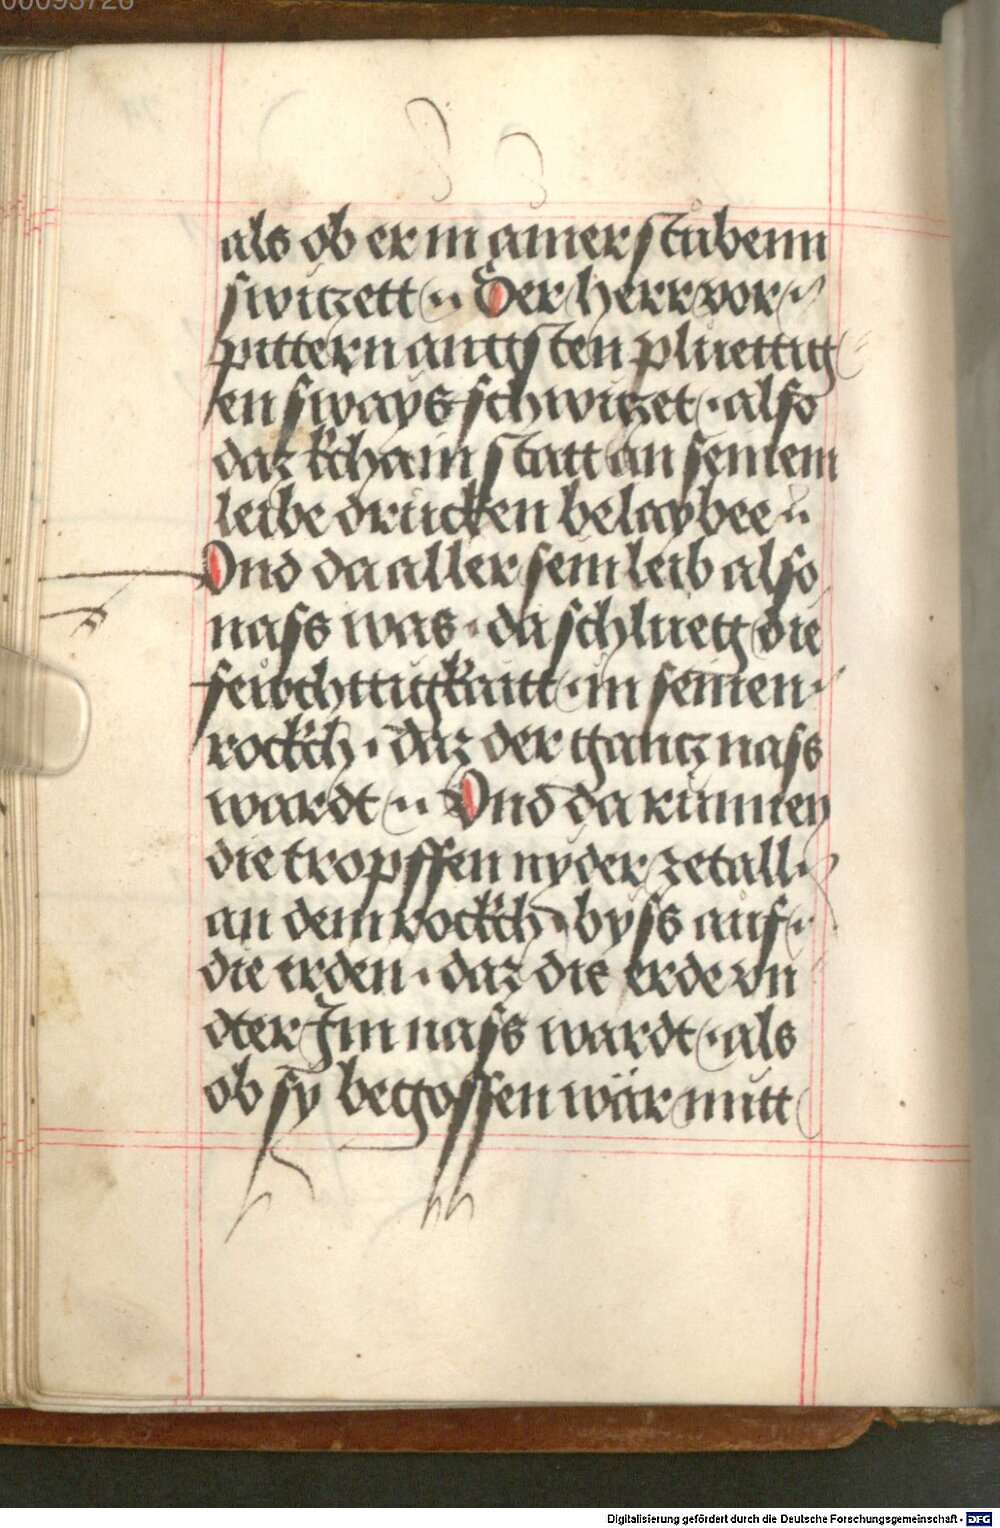 00095726
als ob er in ainer stubenn
switzett Der herr vor
pittern anngsten pluettig
en sways schwitzet · also
daz kchain statt an seinem
leibe drucken belaybee
Vnd da aller sein leib also
nass was · da schlueg die
feiwchttigkaitt · in seinen
rockch · daz der gantz nass
wardt Vnd da runnen
die tropffen nyder zetall
an dem rockch · byss auf
die erden · daz die erde vn
dter Im nass wardt · als
ob sy begossen wär mitt
Digitalisierung gefördert durch die Deutsche Forschungsgemeinschaft - DFG